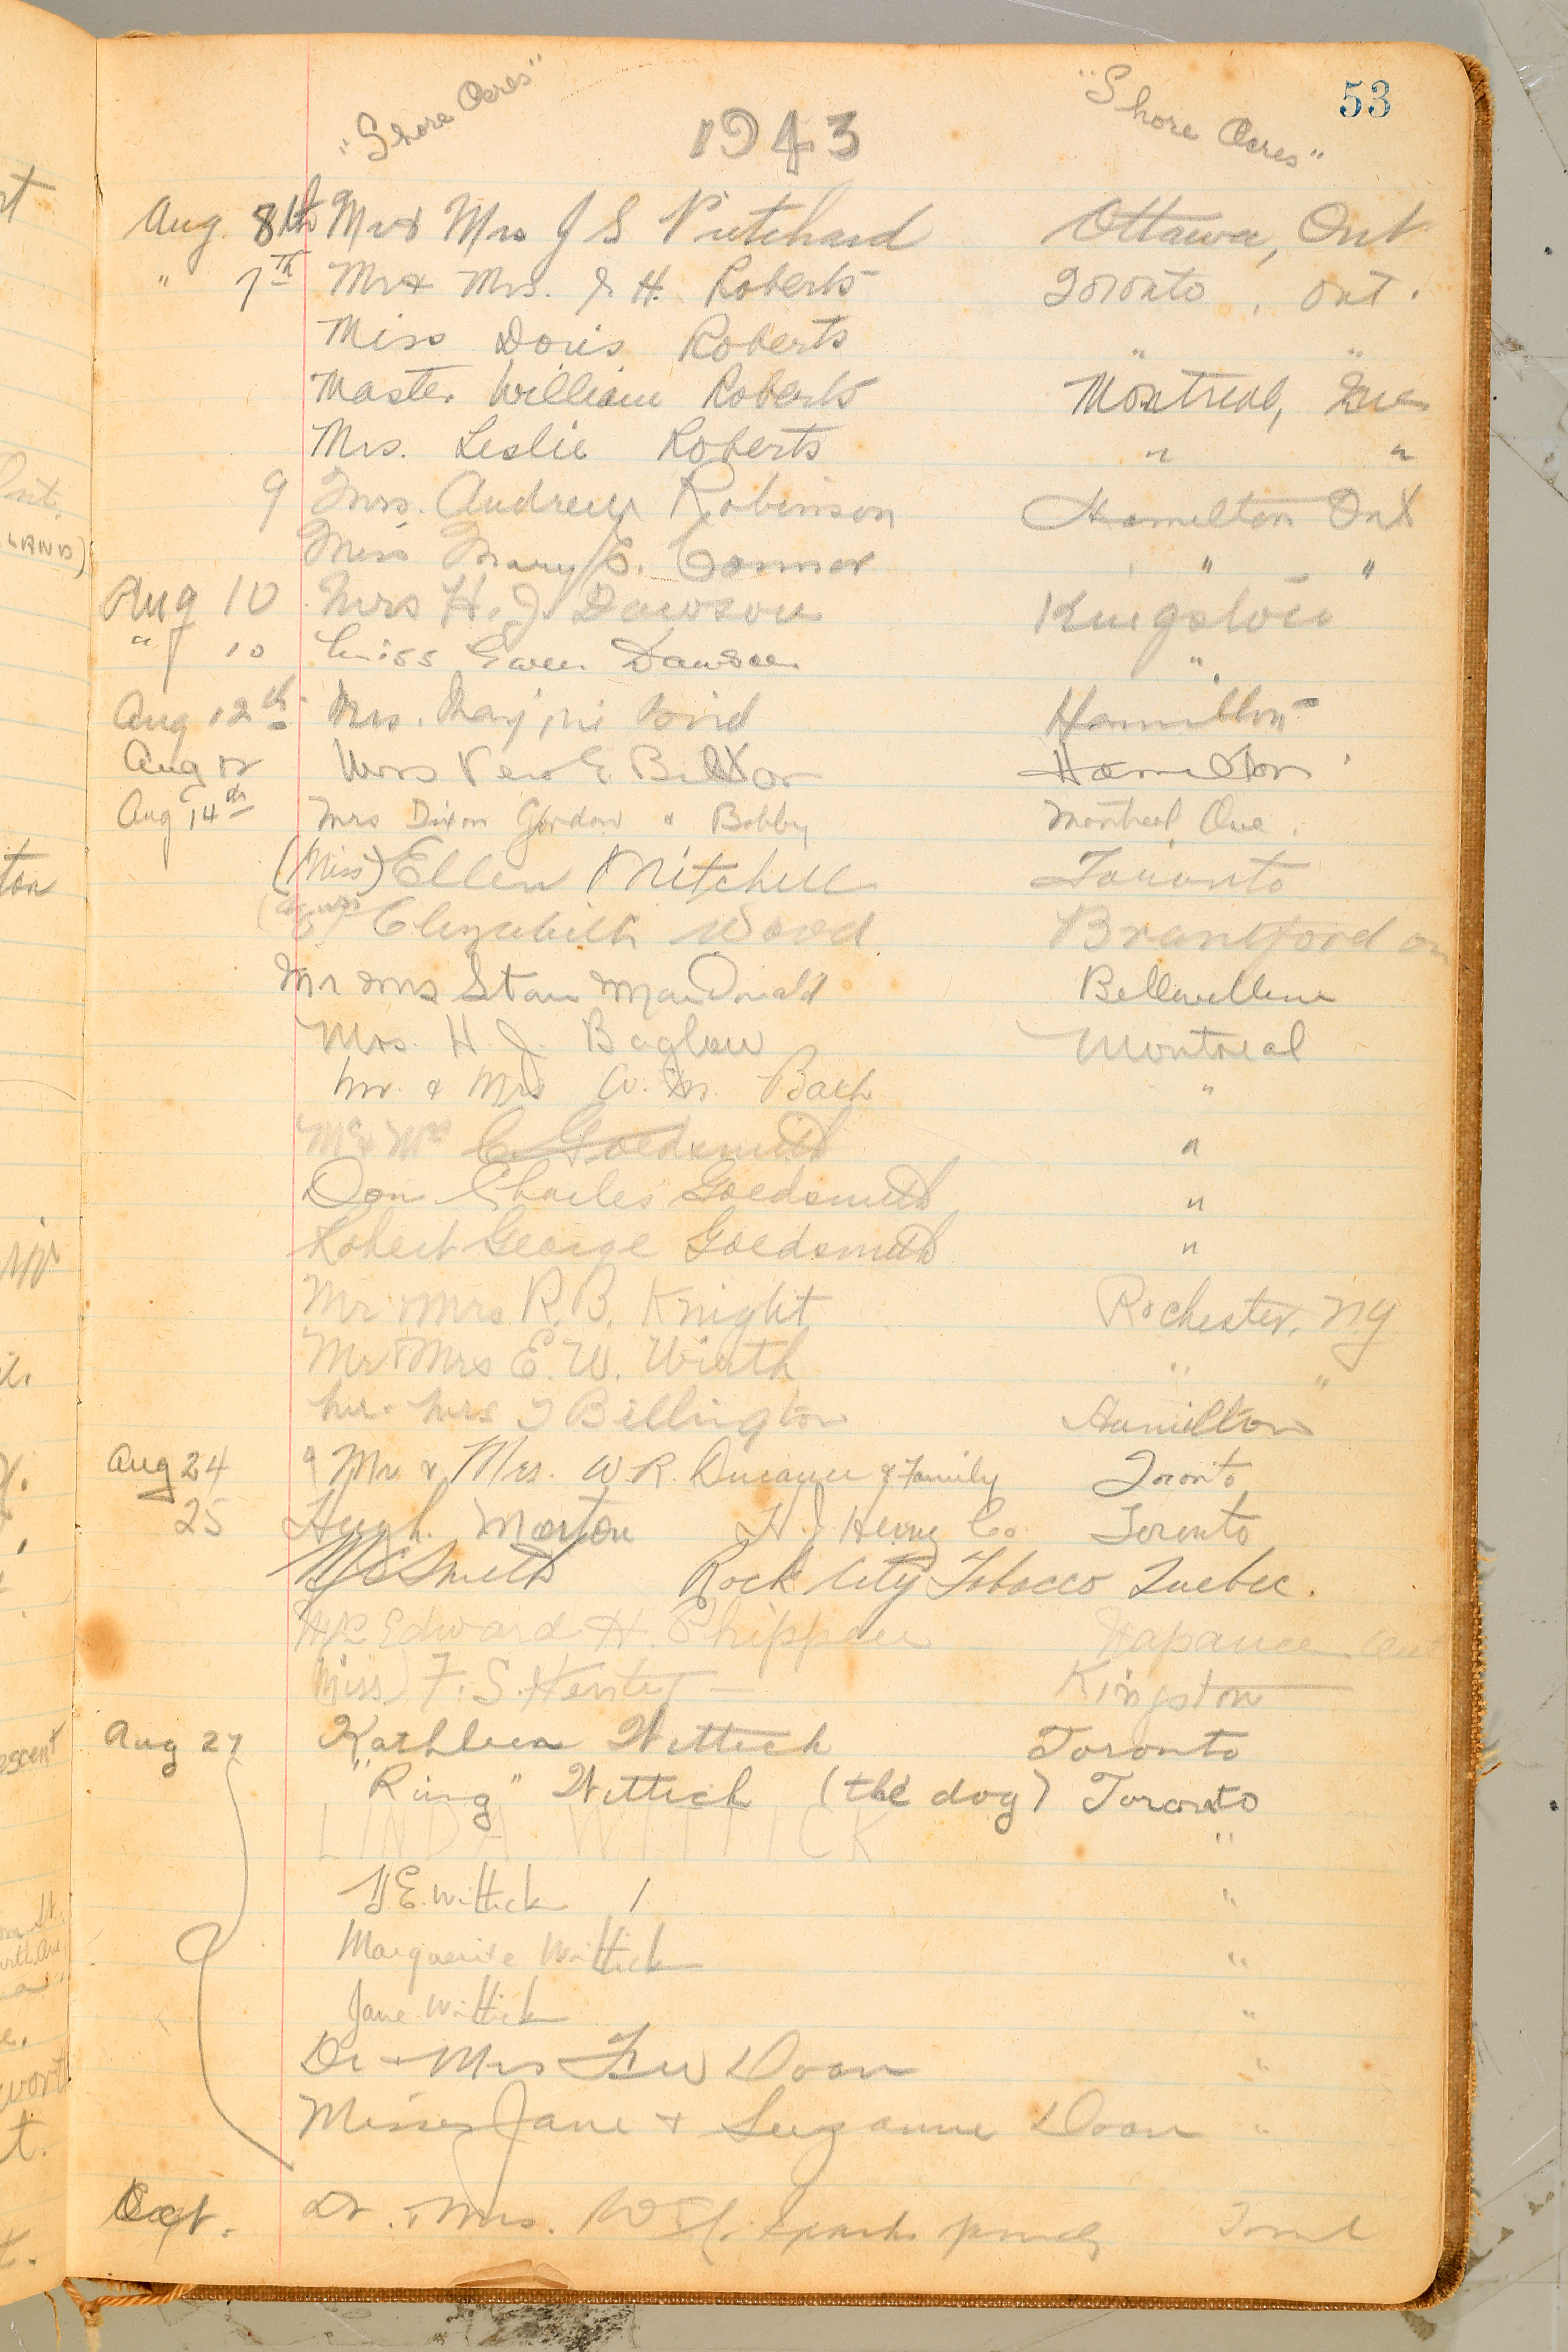 53
"Shore Acres" 1943 "Shore Acres"
Aug. 8th Mr & Mrs J S Pritchard Ottawa, Ont
" 7th Mr & Mrs. J. H. Roberts Toronto, Ont.
Miss Doris Roberts " "
Master William Roberts Montreal, Que
Mrs. Leslie Roberts " "
9 Mrs. Andrew Robinson Hamilton Ont
Miss Mary E. Connor " "
Aug 10 Mrs H. J. Dawson Kingston
" 10 Miss Gwen Dawson "
Aug 12th Mrs. Marjorie Bird Hamilton
Aug 12 Mrs Hamilton
Aug 14th Mrs Dixon Gordon & Bobby Montreal Que.
(Miss) Ellen Mitchell Toronto
Elizabeth Wood Brantford On
Mr Mrs Stan MacDonald Belleville
Mrs. H. J. Baglow Montreal
Mr. & Mrs W. M. Bach "
Mr & Mrs C. Goldsmith "
Don Charles Goldsmith "
Robert George Goldsmith "
Mr & Mrs R. B. Knight Rochester, NY
Mr & Mrs E. W. Wirth " "
Mr. Mrs J Billington Hamilton
Aug 24 Mr & Mrs. W. R. & Family Toronto
25 Hugh Morton H. J. Heinz Co. Toronto
Smith Rock City Tobacco Quebec.
Edward H. Phippen Napanee Ont
(Miss) F. S. Kingston
Aug 27 Kathleen Wittick Toronto
"Ring" Wittick (the dog) Toronto
LINDA WITTICK "
E. Wittick "
Marguerite Wittick "
Jane Wittick "
Dr & Mrs Doan "
Misses Jane & Suzanne Doan "
Dr. Mrs.